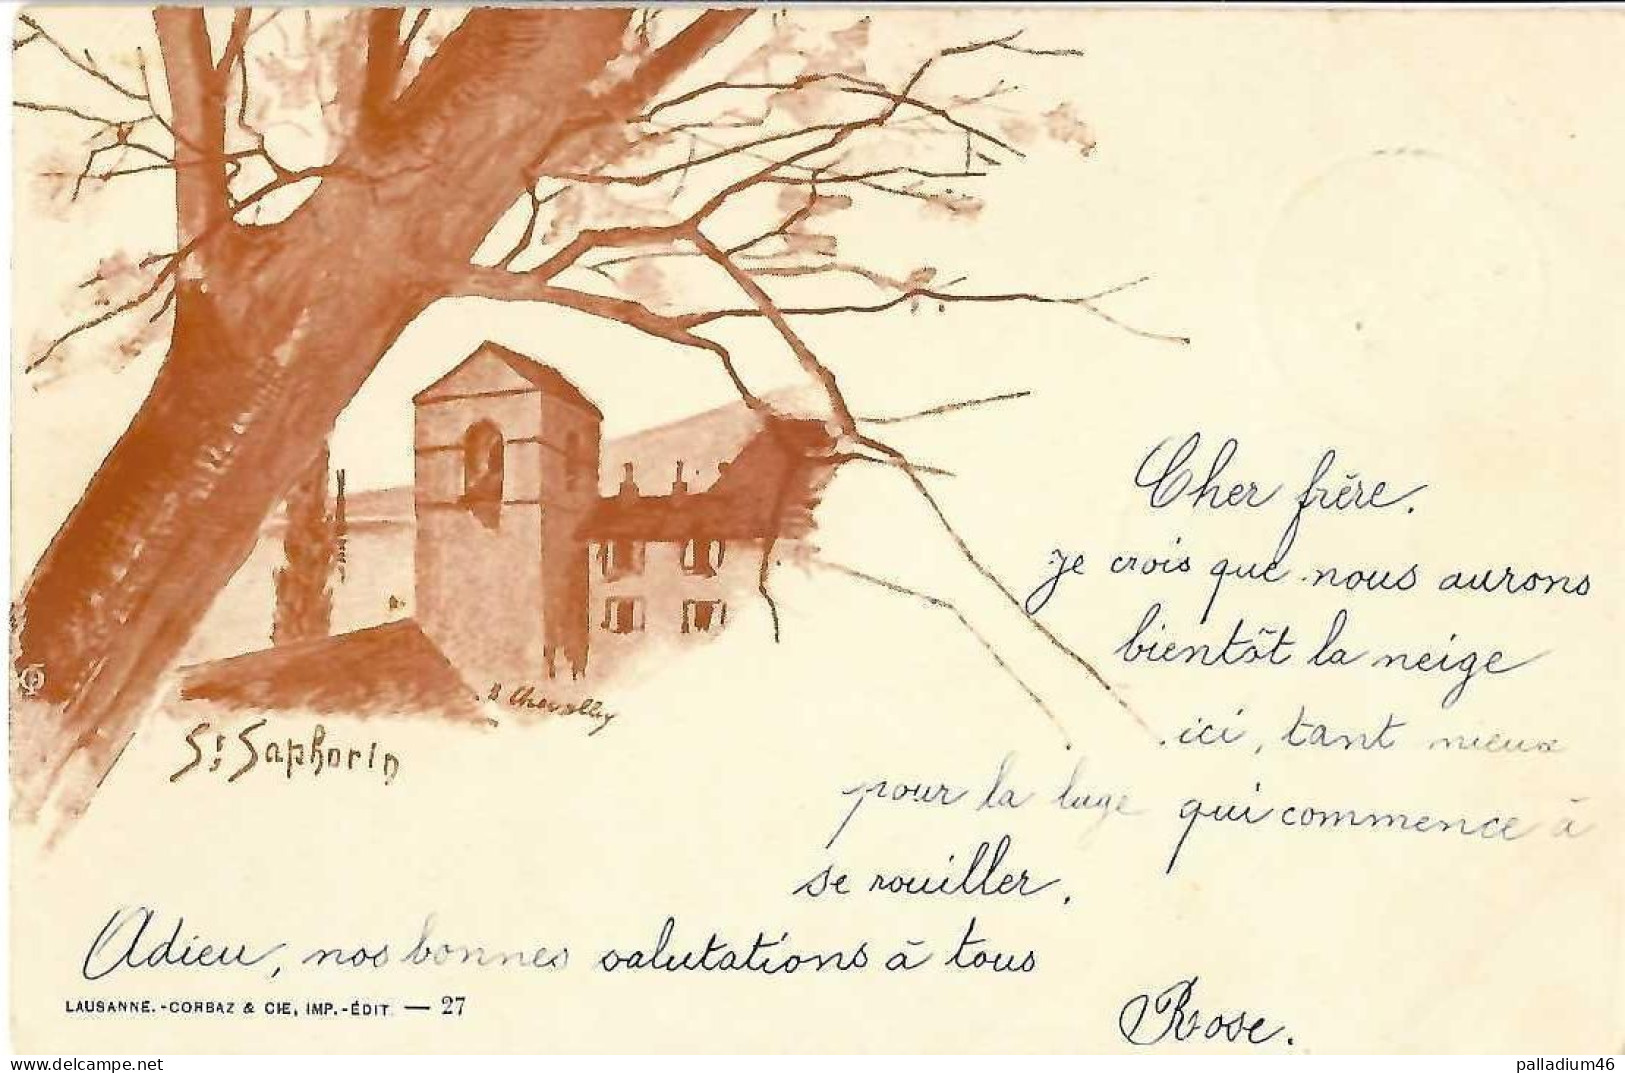 B Chevalley
St Saphorin
Cher frère.
je crois que nous aurons
bientôt la neige
ici, tant mieux
pour la luge qui commence à
se rouiller.
Adieu, nos bonnes salutations à tous
Rose.
LAUSANNE.-CORBAZ & CIE, IMP.-ÉDIT. — 27
https://www.delcampe.net
palladium46